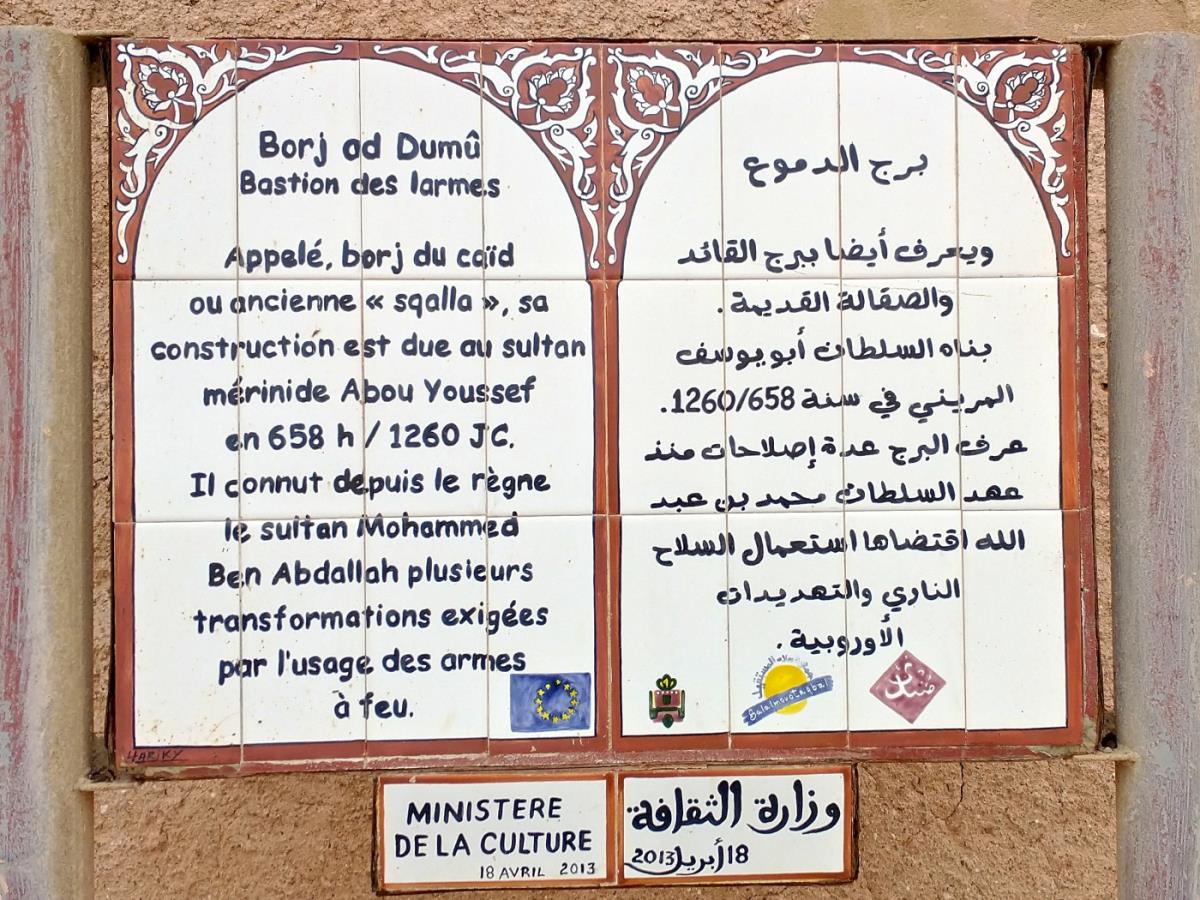 Borj ad Dumû
Bastion des larmes
Appelé, borj du caïd
ou ancienne « sqalla », sa
construction est due au sultan
mérinide Abou Youssef
en 658 h / 1260 JC.
Il connut depuis le règne
le sultan Mohammed
Ben Abdallah plusieurs
transformations exigées
par l'usage des armes
à feu.
HARIKY
برج الدموع
ويعرف أيضا ببرج القائد
والصقالة القديمة.
بناه السلطان أبو يوسف
المريني في سنة 1260/658.
عرف البرج عدة إصلاحات منذ
عهد السلطان محمد بن عبد
الله اقتضاها استعمال السلاح
الناري والتهديدات
الأوروبية.
MINISTERE
DE LA CULTURE
18 AVRIL 2013
وزارة الثقافة
18 أبريل 2013